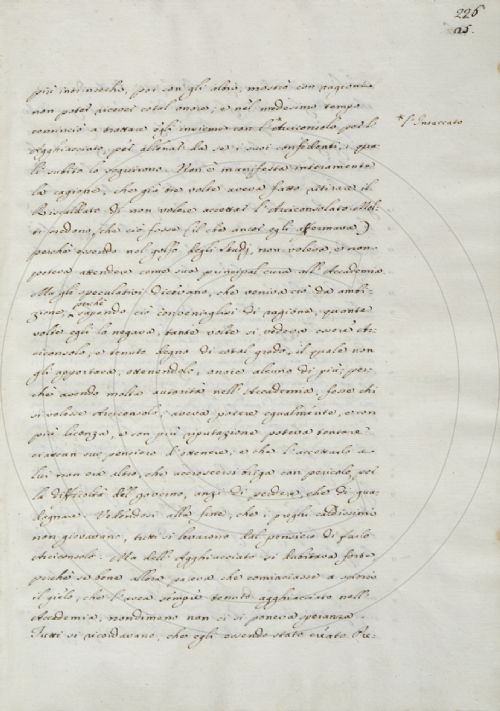 226
25.
più intrinsechi, poi con gli altri, mostrò con ragioni
non poter ricever cotal onore; e nel medesimo tempo
cominciò a trattare egli insieme con l'Arciconsolo per l'
* l'Insaccato
Agghiacciato, per altri da se i suoi confidenti, i qua-
li subito lo seguirono. Non è manifesta interamente
la cagione, che già tre volte aveva fatto ritirare il
di non volere accettar l'Arciconsolato. Mol-
ti credono, che ciò fosse (il che ancor egli affermava)
perchè essendo nel golfo degli Studj, non voleva, e non
poteva attendere come sua principal cura all'Accademia
Ma gli speculativi dicevano, che veniva ciò da ambi-
zione, perchè sapendo ciò convenirglisi di ragione, quante
volte egli lo negava, tante volte si vedeva essere Ar-
ciconsolo, e tenuto degno di cotal grado, il quale non
gli apportava, ottenendolo, onore alcuno di più; per-
chè avendo molta autorità nell'Accademia, fosse chi
si volesse Arciconsolo, aveva potere egualmente, e con
più licenza, e con più riputazione poteva tentare
ciascun suo pensiero d'ottenere; e che l'accettarlo a
lui non era altro, che accrescersi briga con pericolo, per
la difficoltà del governo, anzi di perdere, che di gua-
dagnare. Vedendosi alla fine, che i preghi caldissimi
non giovavano, tutti si levarono dal pensiero di farlo
Arciconsolo. Ma dell'Agghiacciato si dubitava forte
perchè se bene allora pareva che cominciasse a
il gielo, che l'avea sempre tenuto agghiacciato nell'
Accademia, nondimeno non ci si poneva speranza.
Tutti si ricordavano, che egli essendo stato creato Ar-